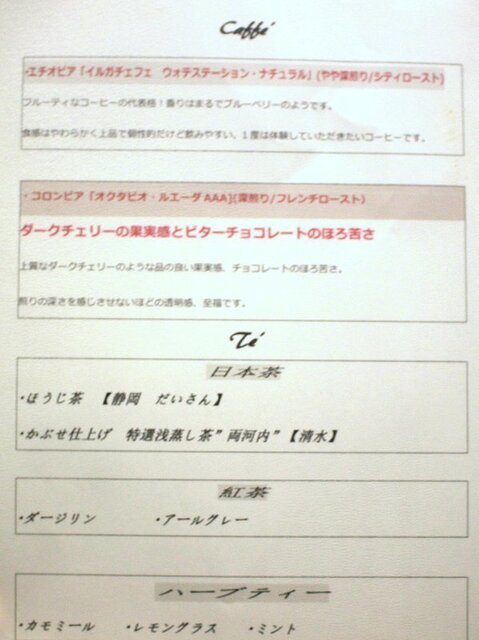 Caffé
・エチオピア「イルガチェフェ　ウォテステーション・ナチュラル」(やや深煎り/シティロースト)
フルーティなコーヒーの代表格！香りはまるでブルーベリーのようです。
食感はやわらかく上品で個性的だけど飲みやすい、1度は体験していただきたいコーヒーです。
・コロンビア「オクタビオ・ルエーダAAA](深煎り/フレンチロースト)
ダークチェリーの果実感とビターチョコレートのほろ苦さ
上質なダークチェリーのような品の良い果実感、チョコレートのほろ苦さ。
煎りの深さを感じさせないほどの透明感、至福です。
Té
日本茶
・ほうじ茶　【静岡　だいさん】
・かぶせ仕上げ　特選浅蒸し茶”両河内”【清水】
紅茶
・ダージリン　・アールグレー
ハーブティー
・カモミール　・レモングラス　・ミント